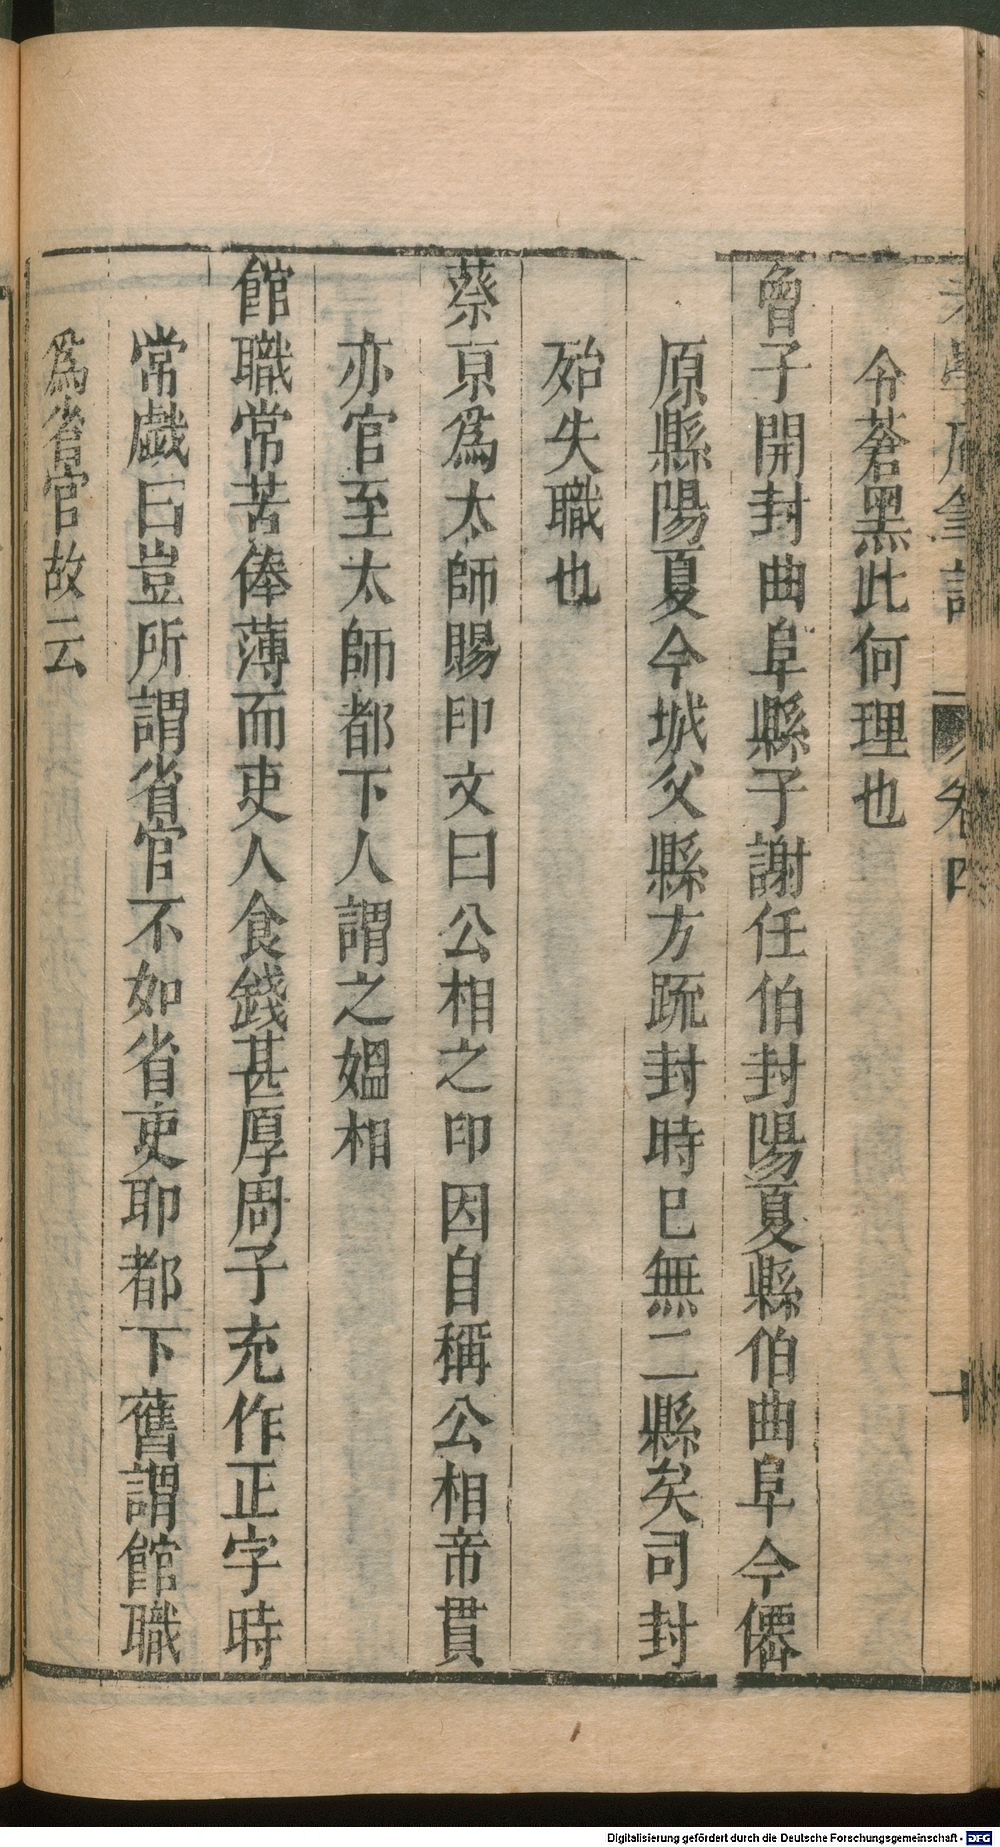 老學庵筆記 卷四 十
令蒼黑此何理也
曾子開封曲阜縣子謝任伯封陽夏縣伯曲阜今僊
原縣陽夏今城父縣方疏封時已無二縣矣司封
殆失職也
蔡京爲太師賜印文曰公相之印因自稱公相帝貫
亦官至太師都下人謂之媼相
館職常苦俸薄而吏人食錢甚厚周子充作正字時
常戲曰豈所謂省官不如省吏耶都下舊謂館職
爲省官故云
Digitalisierung gefördert durch die Deutsche Forschungsgemeinschaft - DFG